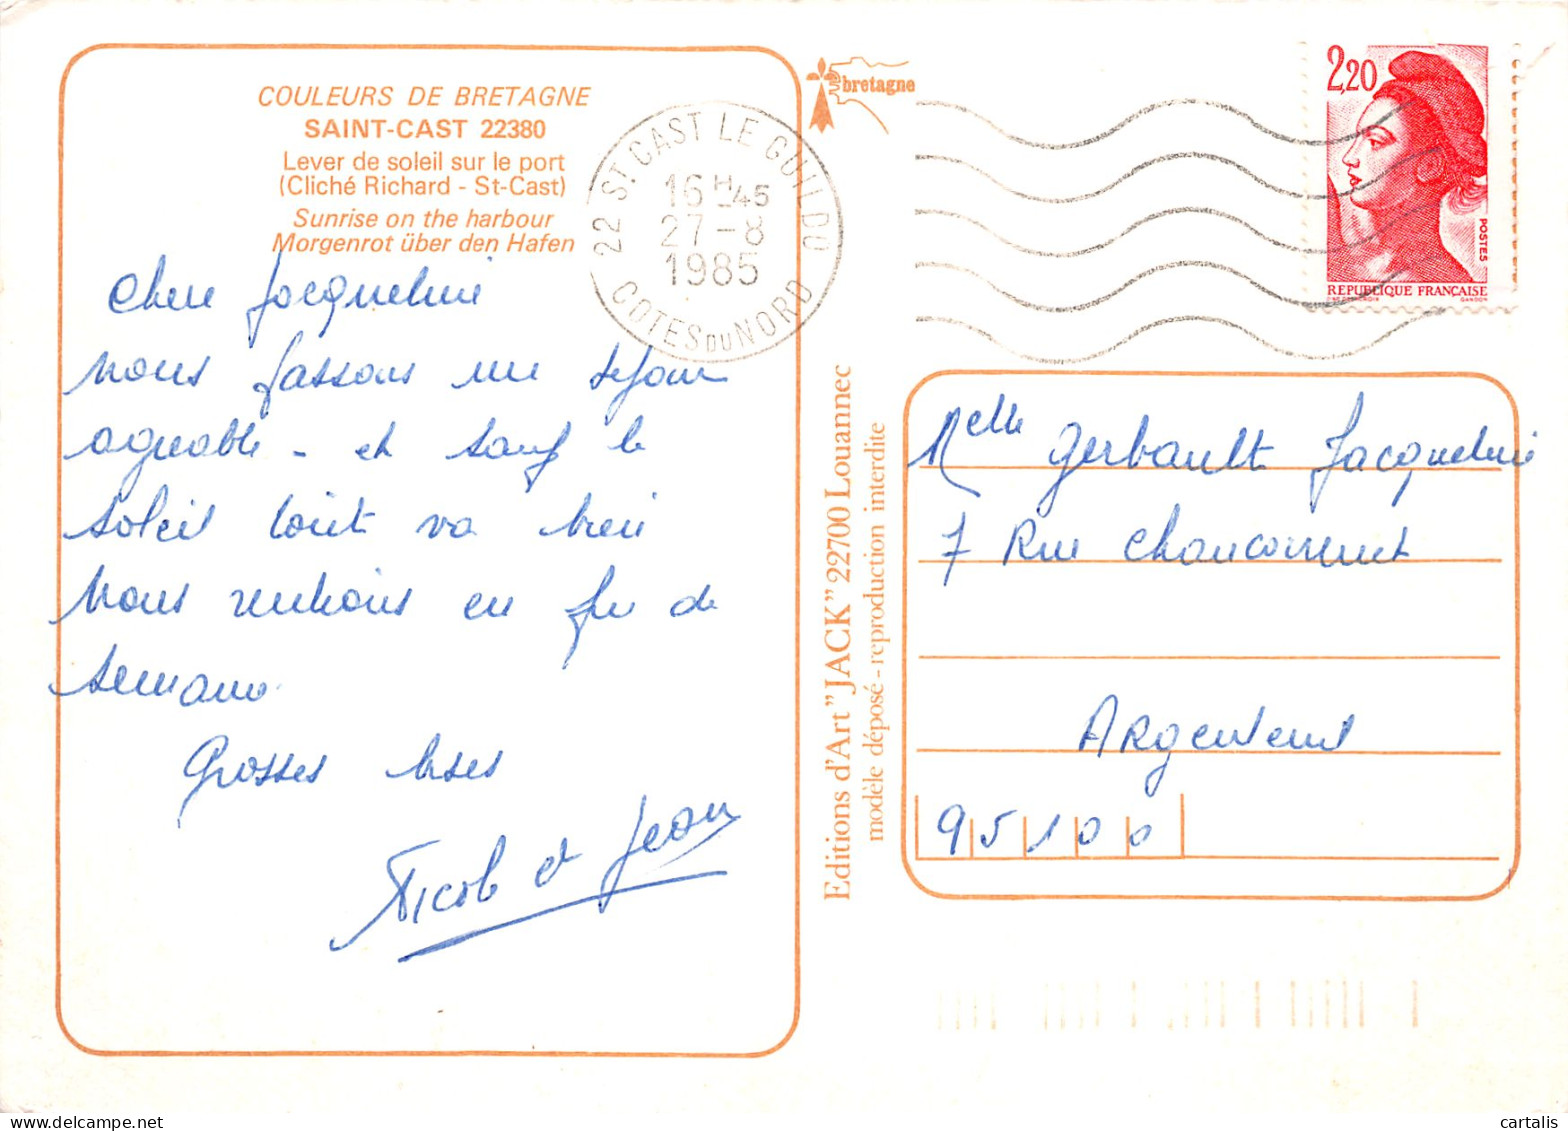 COULEURS DE BRETAGNE
SAINT-CAST 22380
Lever de soleil sur le port
(Cliché Richard - St-Cast)
Sunrise on the harbour
Morgenrot über den Hafen
Chere Jacqueline
nous passons un sejour
agreable - et sauf le
soleil tout va bien
Nous rentrons en fin de
semaine
Grosses bises
Nicole et Jean
22 ST CAST LE GUILDO
16H45
27-8
1985
COTES DU NORD
bretagne
2,20
POSTES
REPUBLIQUE FRANÇAISE
GANDON
Editions d'Art "JACK" 22700 Louannec
modèle déposé - reproduction interdite
Melle Gerbault Jacqueline
7 Rue
Argenteuil
95100
cartalis